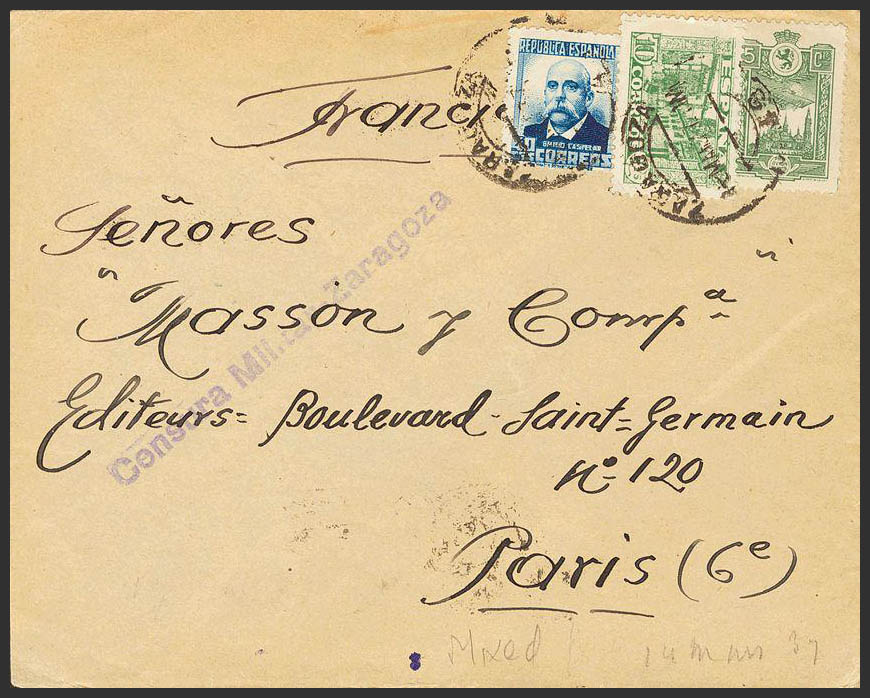 Francia
REPÚBLICA ESPAÑOLA
EMILIO CASTELAR
CORREOS
10 CTS
ESPAÑA
5 Cts
ZARAGOZA
ZARAGOZA
Señores
"Massón y Compª"
Editeurs= Boulevard-Saint=Germain
nº 120
Paris (6e)
Censura Militar Zaragoza
Mixed
37